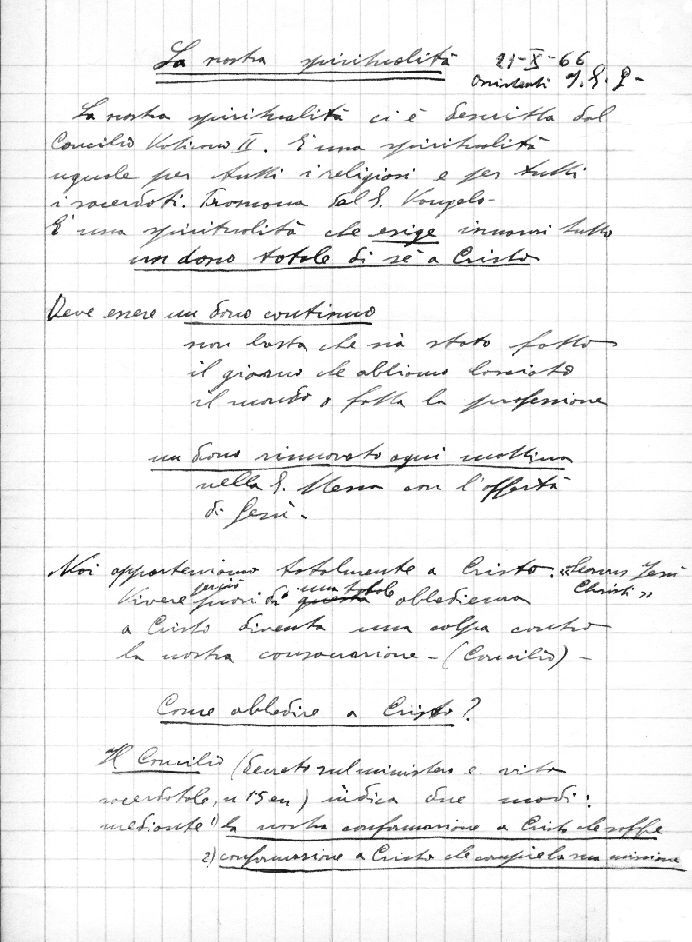 La nostra spiritualità 21-X-66
Assistenti J.G.P-
La nostra spiritualità ci è descritta dal
Concilio Vaticano II. È una spiritualità
uguale per tutti i religiosi e per tutti
i sacerdoti. Promana dal S. Vangelo-
È una spiritualità che esige innanzi tutto
un dono totale di sé a Cristo
Deve essere un dono continuo
non basta che sia stato fatto
il giorno che abbiamo lasciato
il mondo o fatta la professione
un dono rinnovato ogni mattina
nella S. Messa con l'offerta
di Gesù-
Noi apparteniamo totalmente a Cristo. "Servus Jesu
Christi"
perciò una totale
Vivere fuori di questa obbedienza
a Cristo diventa una colpa contro
la nostra consacrazione - (Concilio) -
Come obbedire a Cristo?
Il Concilio (decreto sul ministero e vita
sacerdotale, n 15) indica due modi:
mediante 1) la nostra conformazione a Cristo che soffre
2) conformazione a Cristo che compie la sua missione